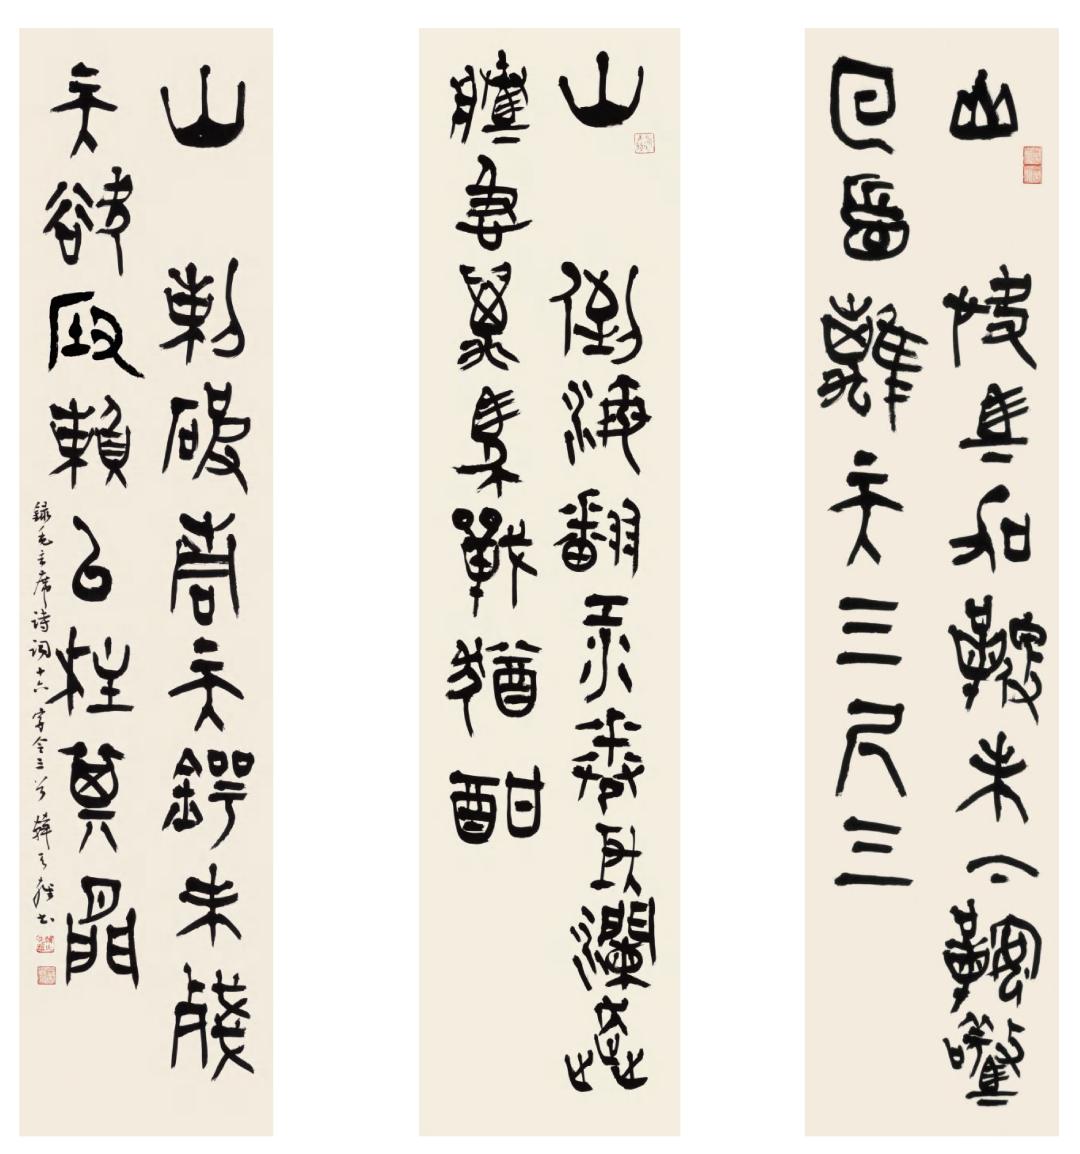 山 快馬加鞭未下鞍驚
回首離天三尺三
山 倒海翻江卷巨瀾奔
騰急萬馬戰猶酣
山 刺破青天鍔未殘
天欲墮賴以拄其間
錄毛主席诗词十六字令三首 韓天雍书